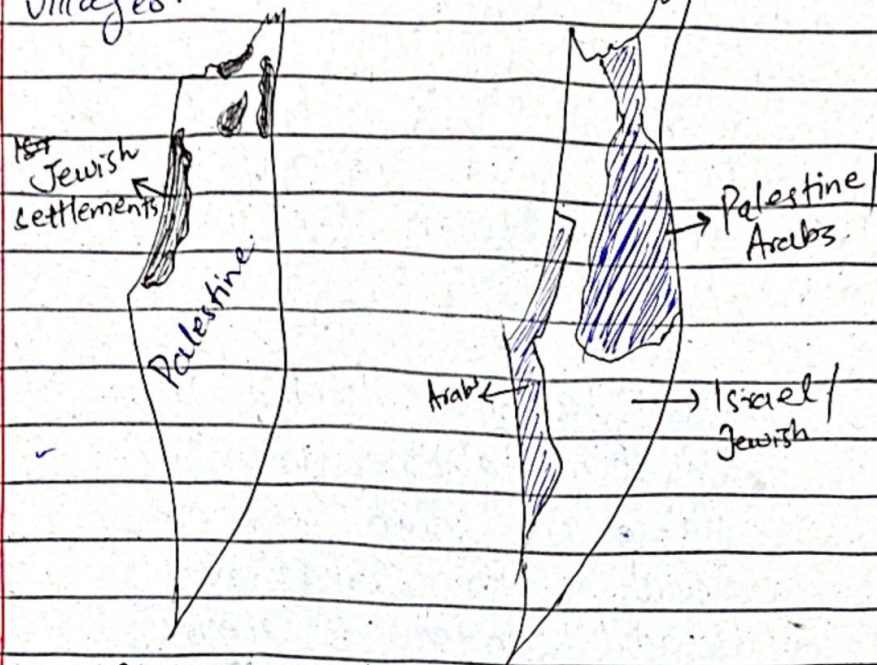 villages.
Jewish
settlements
Palestine.
Palestine/
Arabs
Arab
Israel/
Jewish